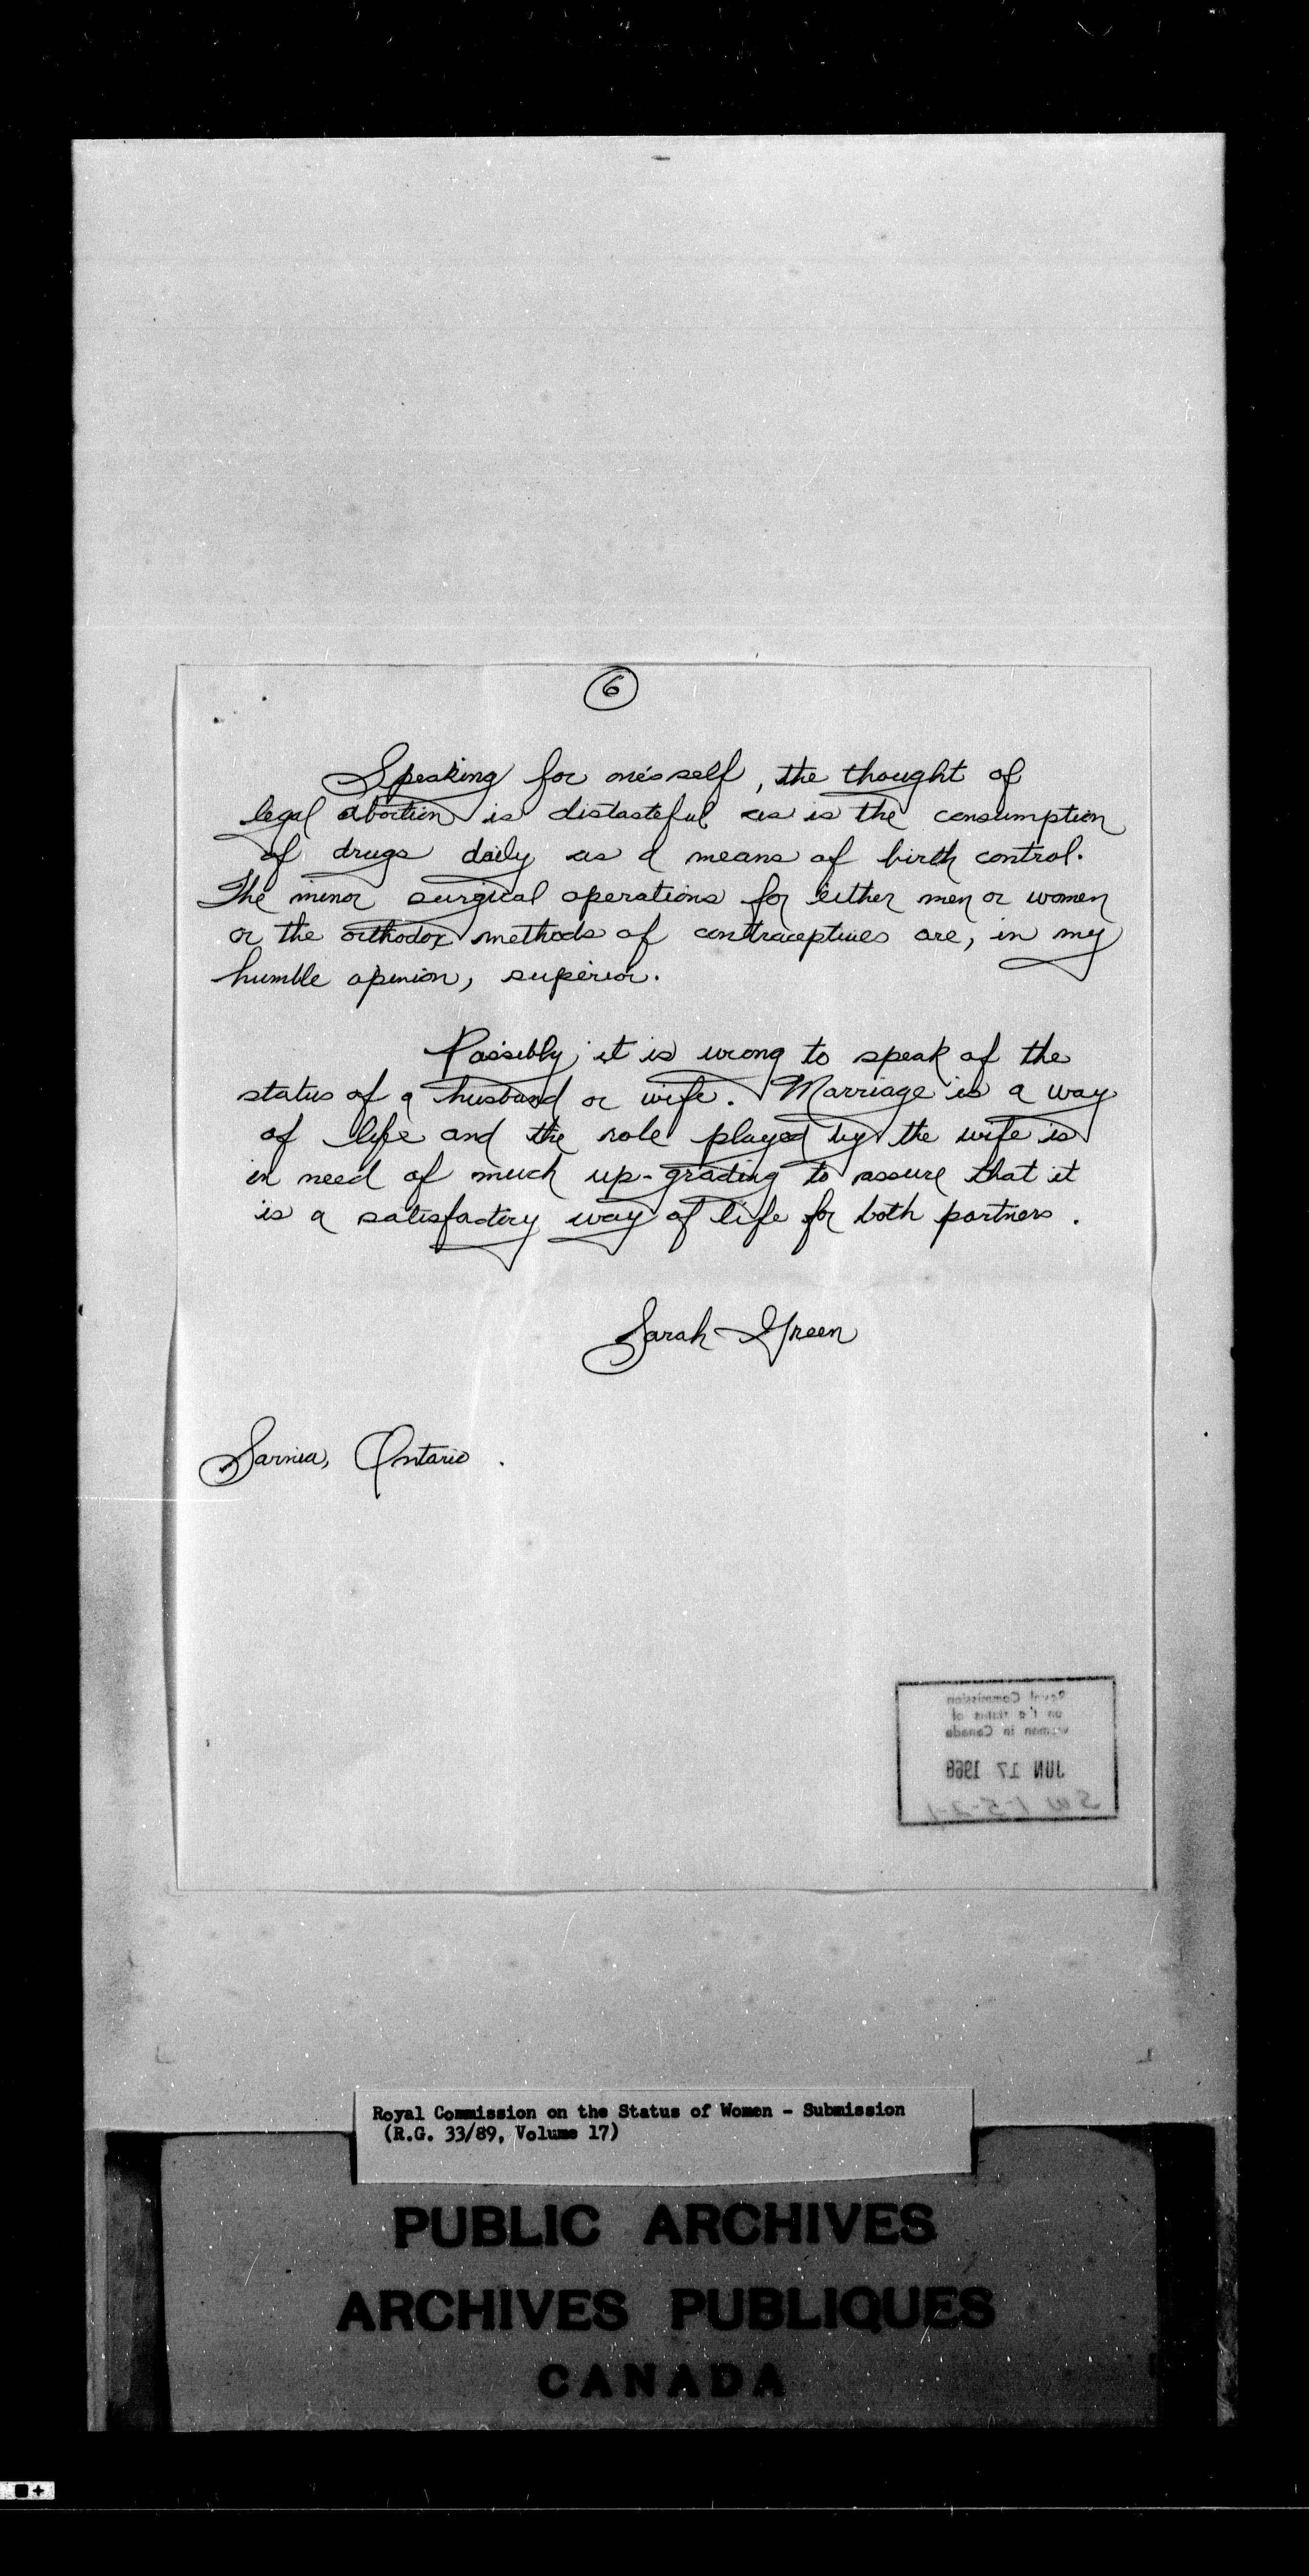 6
Speaking for one's self, the thought of
legal abortion is distasteful as is the consumption
of drugs daily as a means of birth control.
The minor surgical operations for either men or women
or the orthodox methods of contraceptives are, in my
humble opinion, superior.
Possibly it is wrong to speak of the
status of a husband or wife. Marriage is a way
of life and the role played by the wife is
in need of much up-grading to assure that it
is a satisfactory way of life for both partners.
Sarah Green
Sarnia, Ontario.
Royal Commission
on the status of
women in Canada
JUN 17 1968
SW 1-5-2-1
Royal Commission on the Status of Women - Submission
(R.G. 33/89, Volume 17)
PUBLIC ARCHIVES
ARCHIVES PUBLIQUES
CANADA